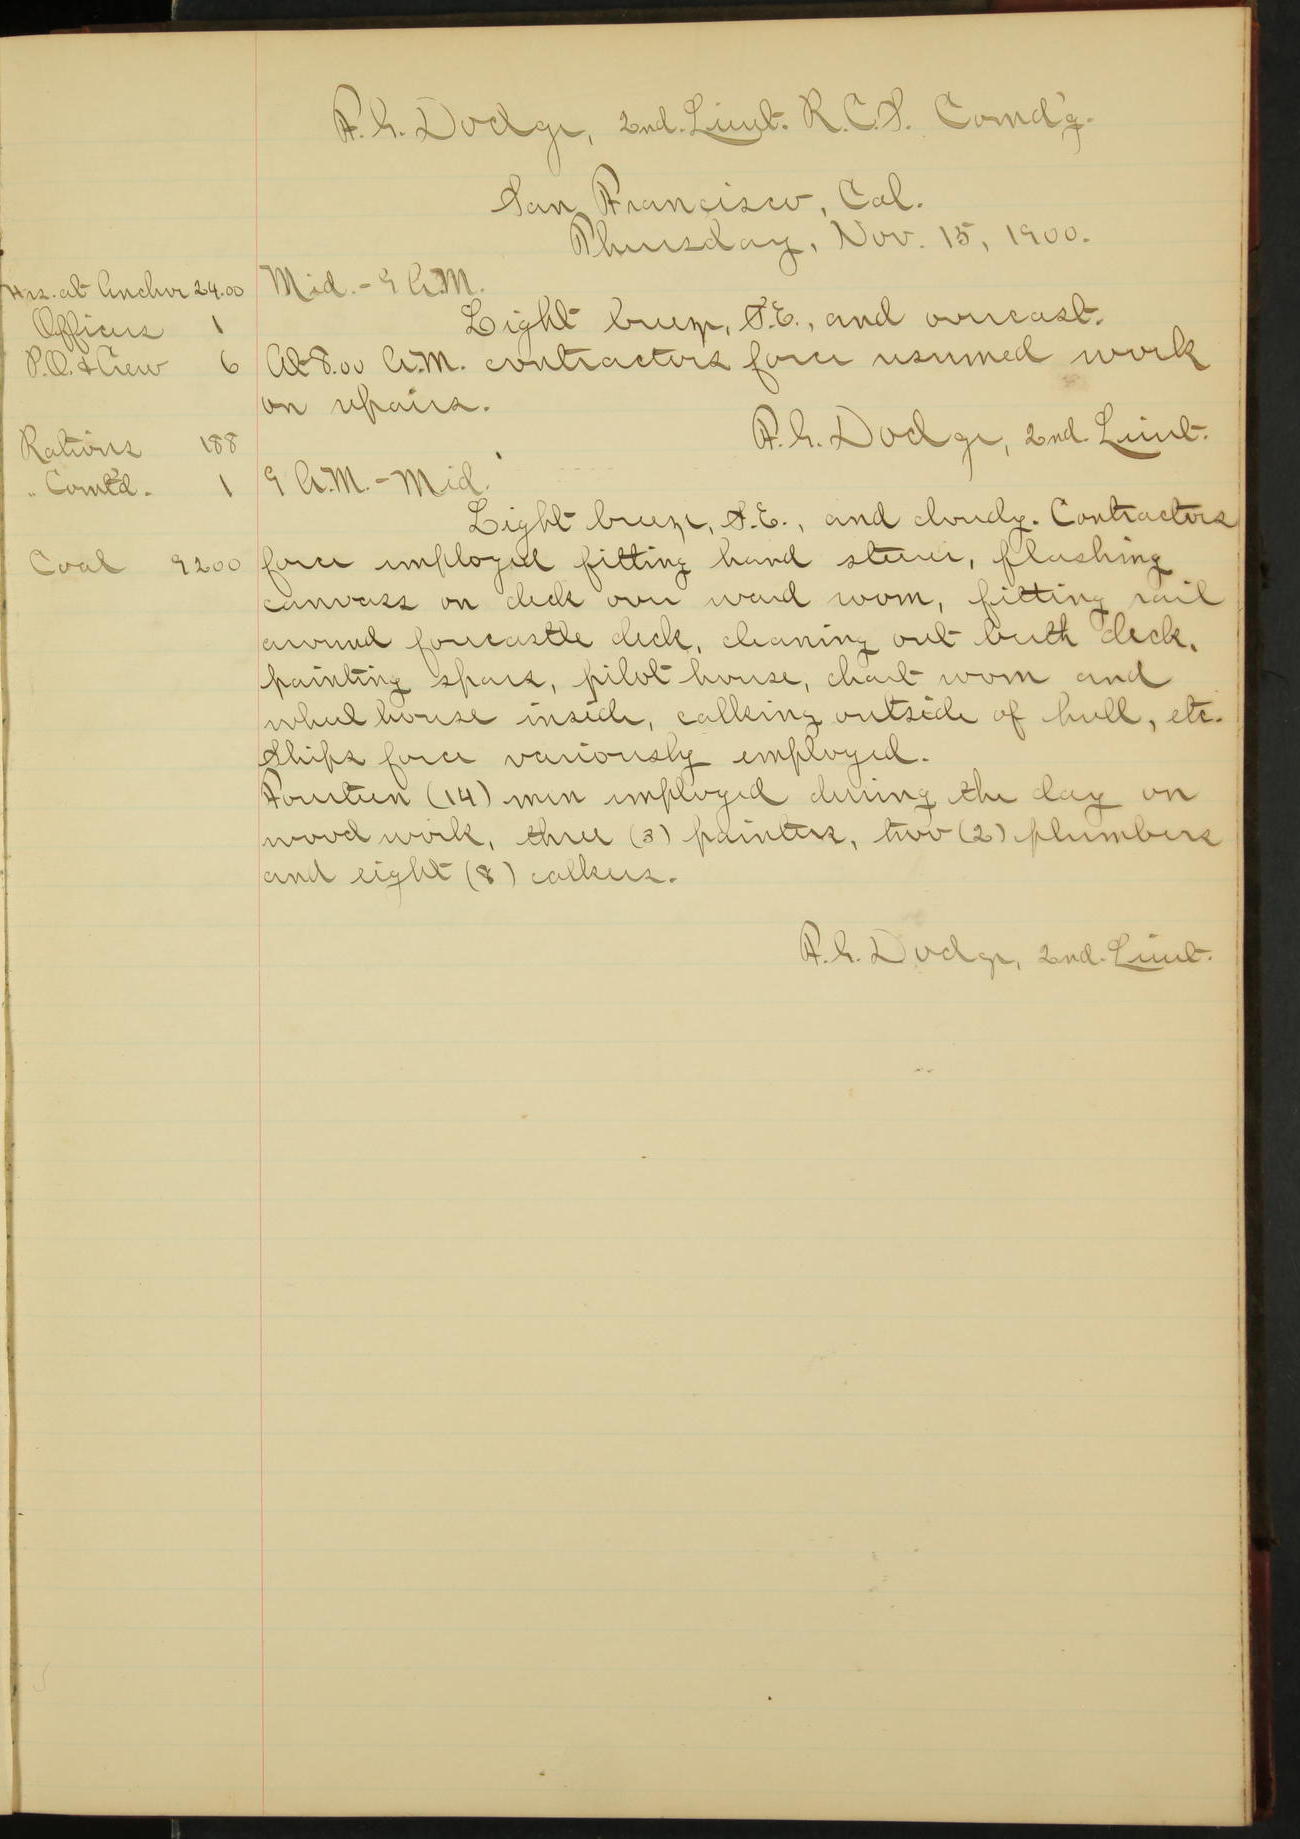 F. G. Dodge, 2nd. Lieut. R.C.S. Comd'g.
San Francisco, Cal.
Thursday, Nov. 15, 1900.
Hrs. at Anchor 24.00
Officers 1
P.O. & Crew 6
Rations 188
" Comt'd. 1
Coal 9200
Mid. - 9 A.M.
Light breeze, S.E., and overcast.
At 8.00 A.M. contractors force resumed work
on repairs.
F. G. Dodge, 2nd. Lieut.
9 A.M. - Mid.
Light breeze, S.E., and cloudy. Contractors
force employed fitting hand steerer, flashing
canvass on deck over ward room, fitting rail
around forecastle deck, cleaning out berth deck,
painting spars, pilot house, chart room and
wheel house inside, calking outside of hull, etc.
Ships force variously employed.
Fourteen (14) men employed during the day on
wood work, three (3) painters, two (2) plumbers
and eight (8) calkers.
F. G. Dodge, 2nd. Lieut.